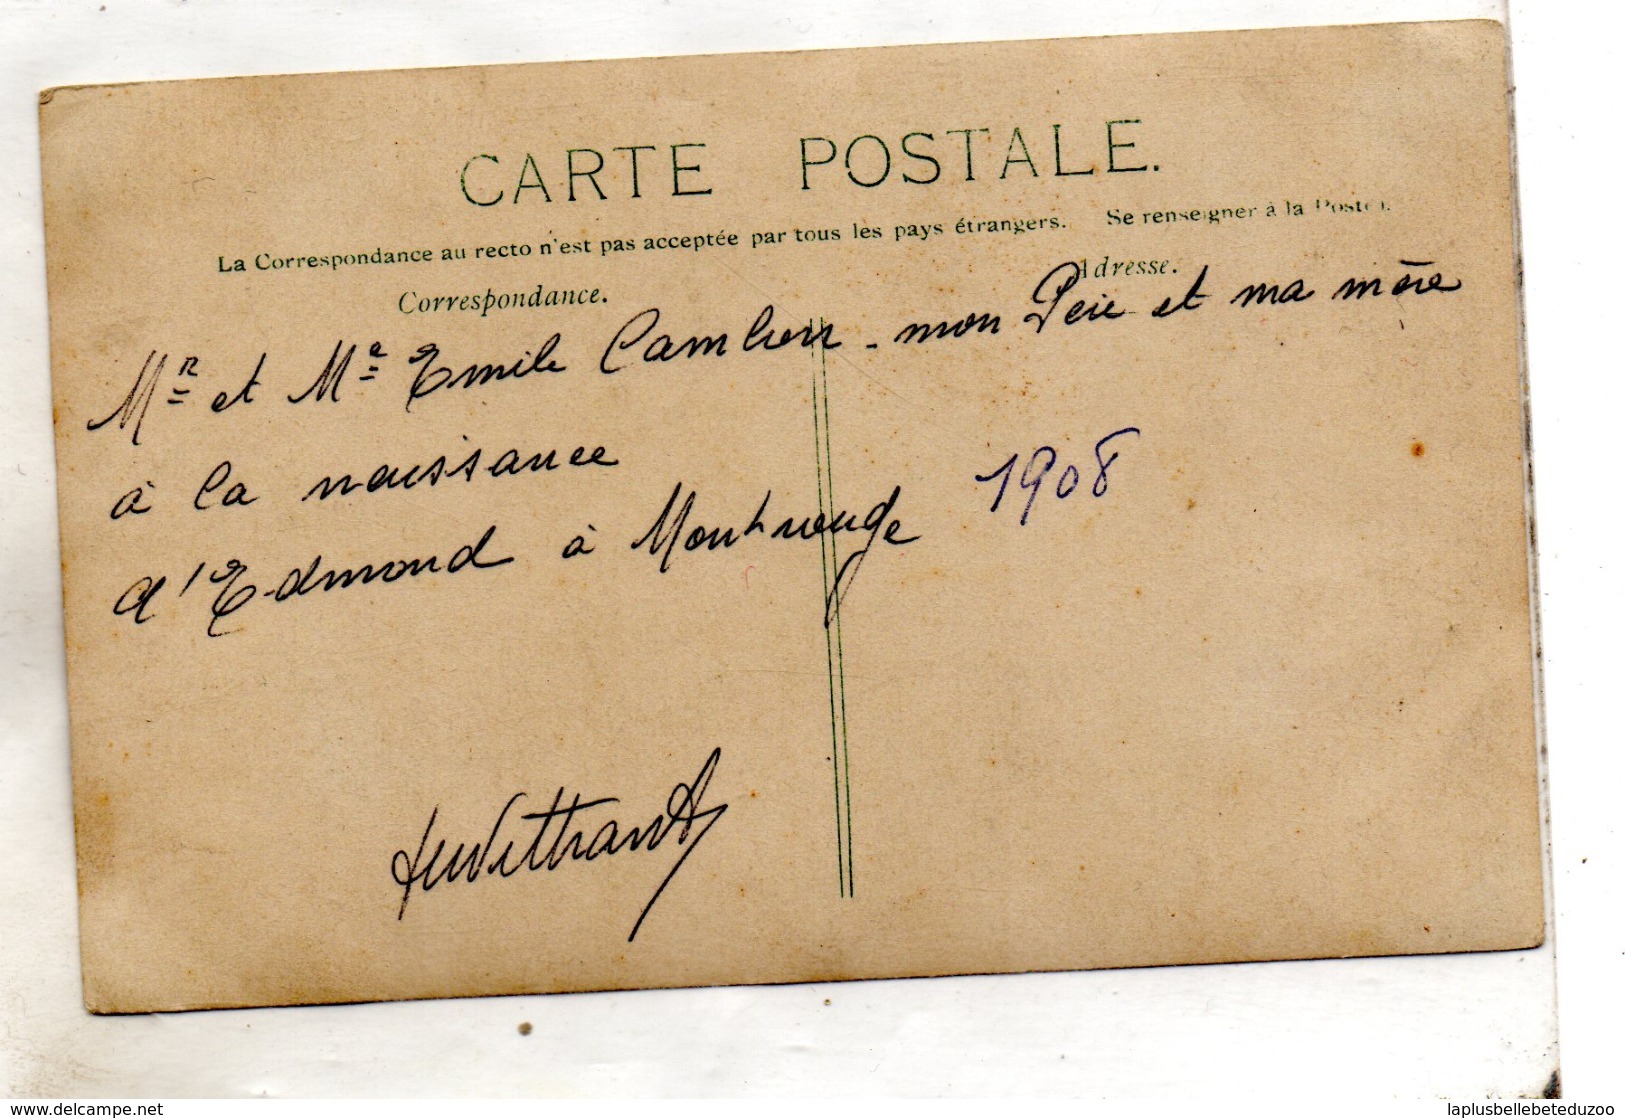 CARTE POSTALE.
La Correspondance au recto n'est pas acceptée par tous les pays étrangers. Se renseigner à la Poste).
Correspondance.
Adresse.
Mr et Me Emile - mon Père et ma mère
à la naissance
d'Edmond à Montrouge
1908
www.delcampe.net
laplusbellebeteduzoo